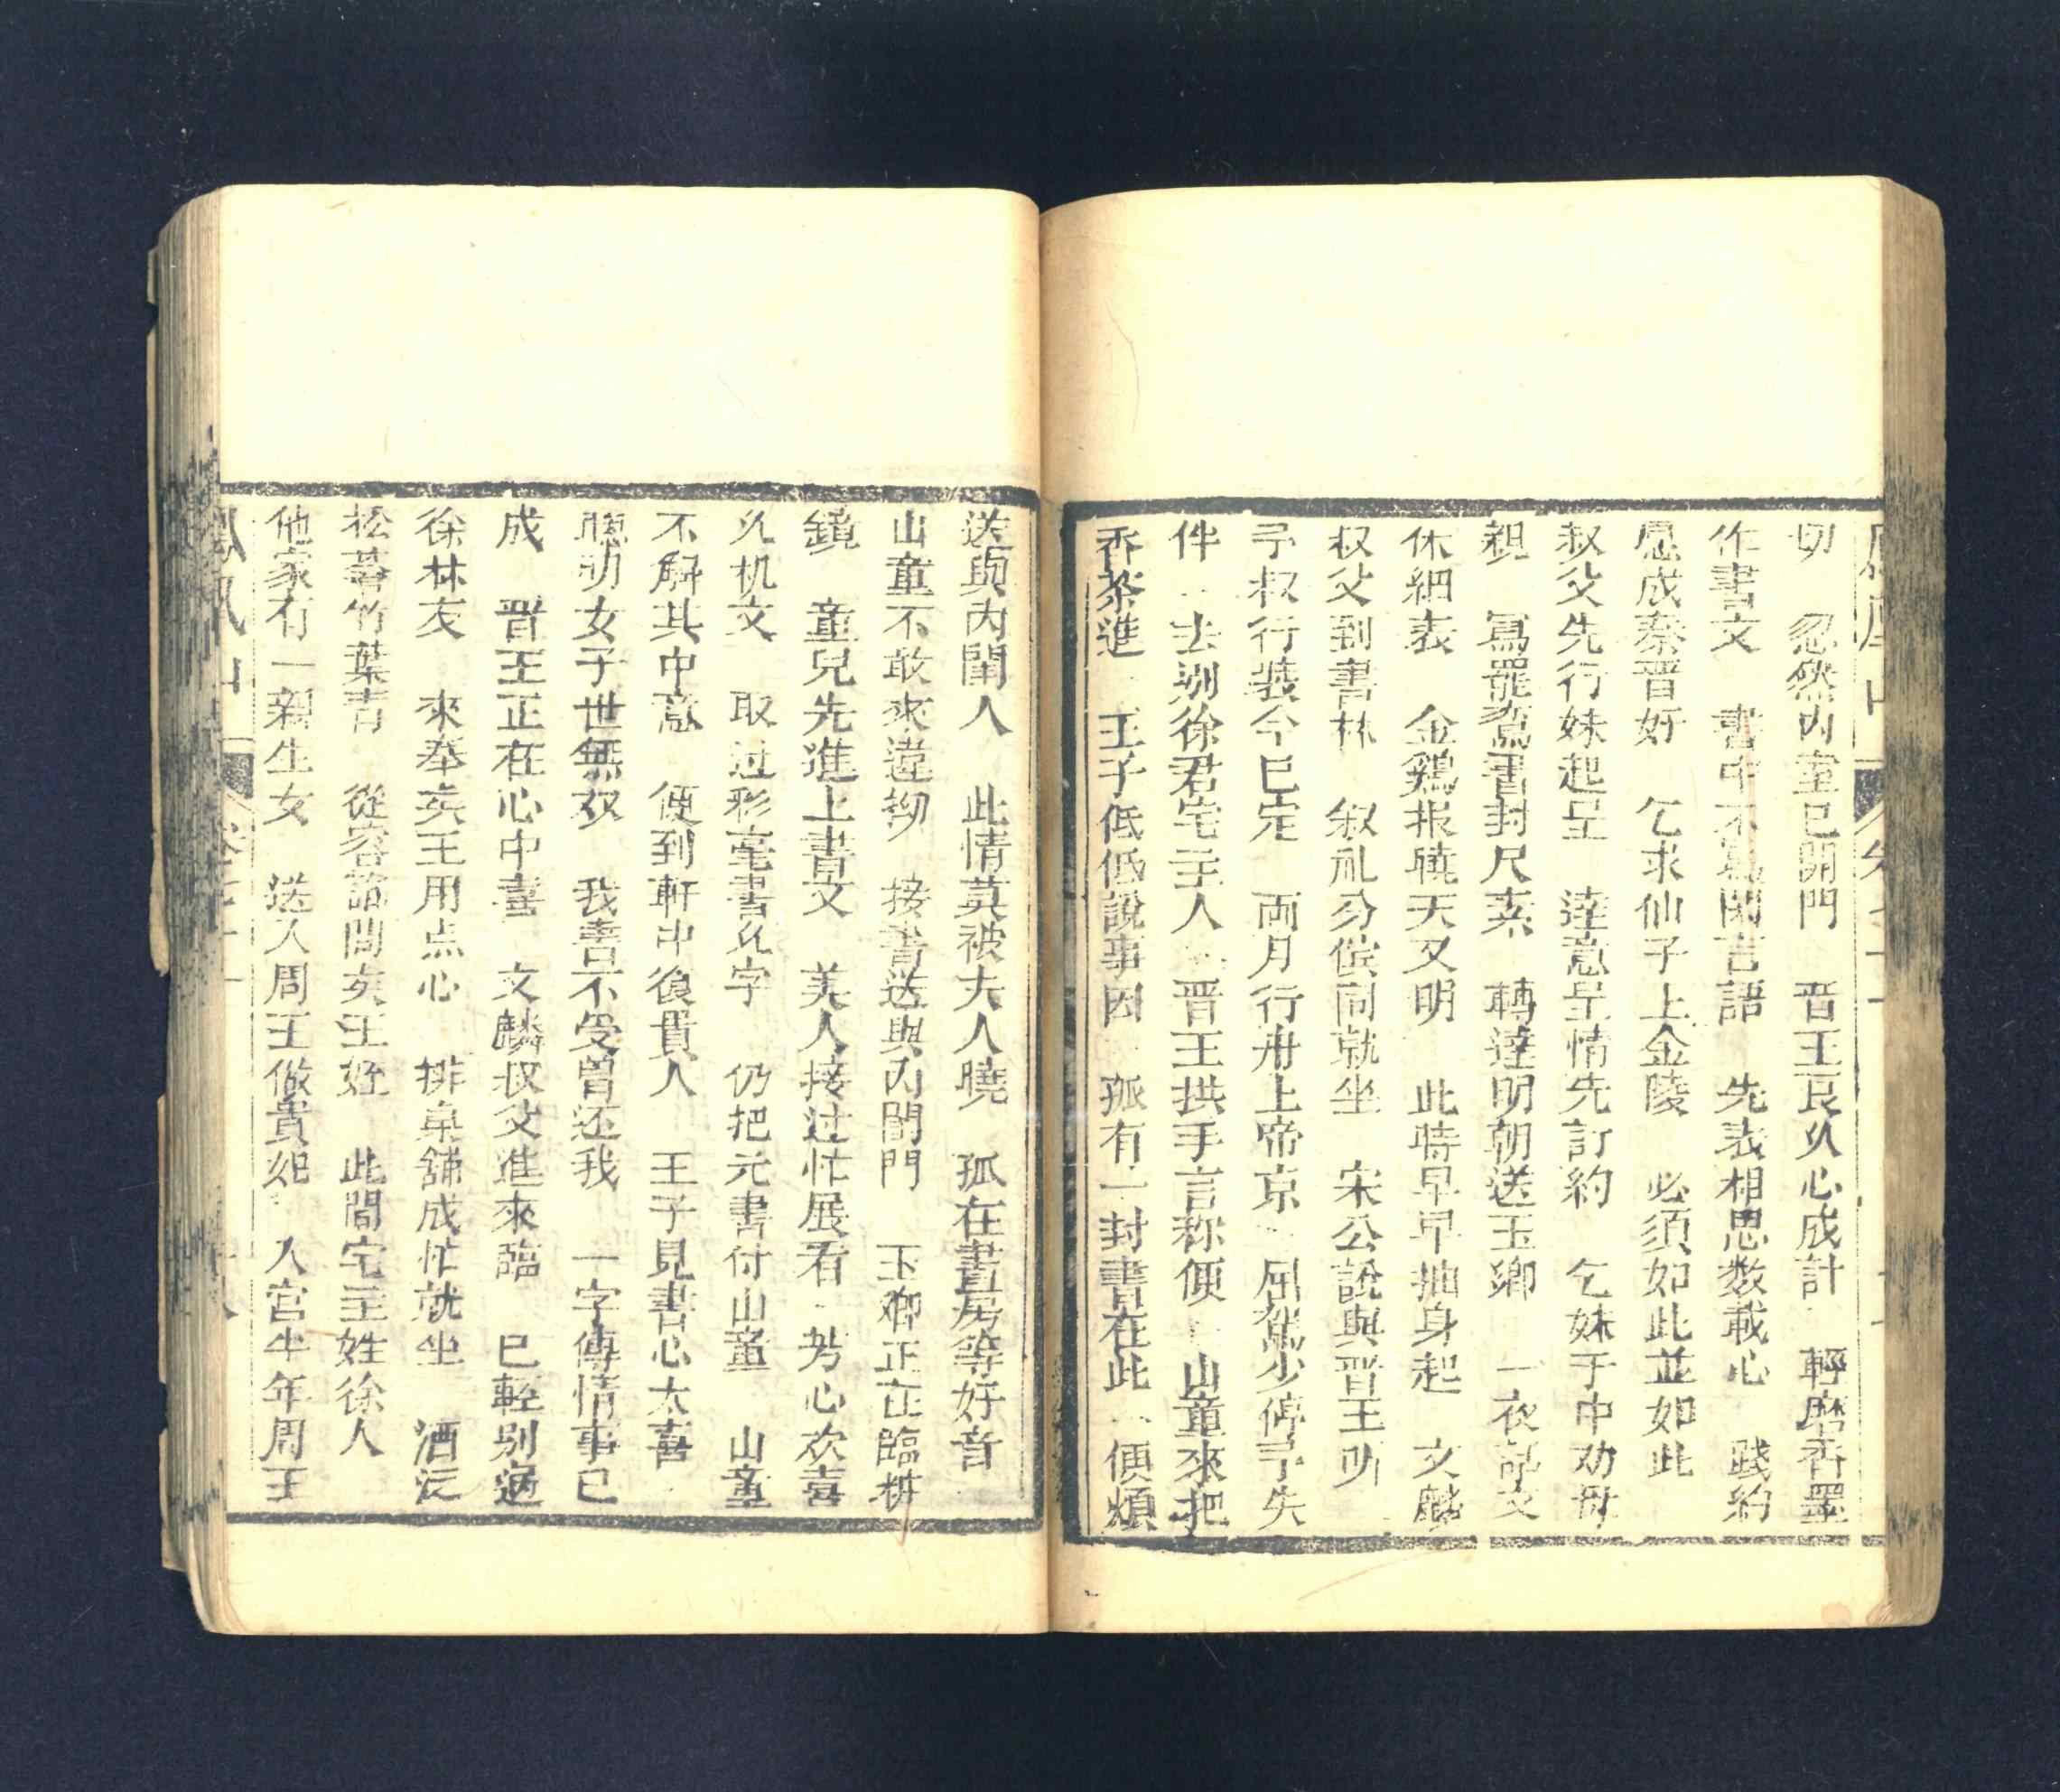 切　忽然內堂已開門　晋王良久心成計　輕磨香墨
作書文　書中不寫閑言語　先表相思数載心　踐約
恳成秦晋好　乞求仙子上金陵　必須如此並如此
叔父先行妹起呈　達意呈情先訂約　乞妹于中劝母
親　寫罷鸞書封尺素　轉達明朝送玉卿　一夜
休細表　金鷄报曉天又明　此時早早抽身起　文麟
叔父到書林　叙礼分候同就坐　宋公說與晋王听
子叔行裝今巳定　両月行舟上帝京　屈駕少停
伴　去别徐君宅主人　晋王拱手言称便　山童來把
香茶進　王子低低說事因　孤有一封書在此　便煩
送與內閨人　此情莫被夫人曉　孤在書房等好音
山童不敢來違拗　接書送與內閨門　玉卿正在臨
鏡　童兒先進上書文　美人接过忙展看　芳心欢喜
久机文　取过彩毫書幾字　仍把元書付山童　山童
不解其中意　便到軒中復貴人　王子見書心太喜
聰明女子世無双　我書不受曾还我　一字傳情事已
成　晋王正在心中喜　文麟叔父進來臨　巳輕别過
徐林友　來奉亥王用点心　排桌舖成忙就坐　酒泛
松蕃竹葉青　從容說問亥王姪　此間宅主姓徐人
他家有一親生女　送入周王做貴妃　入宮半年周王
鳳凰山